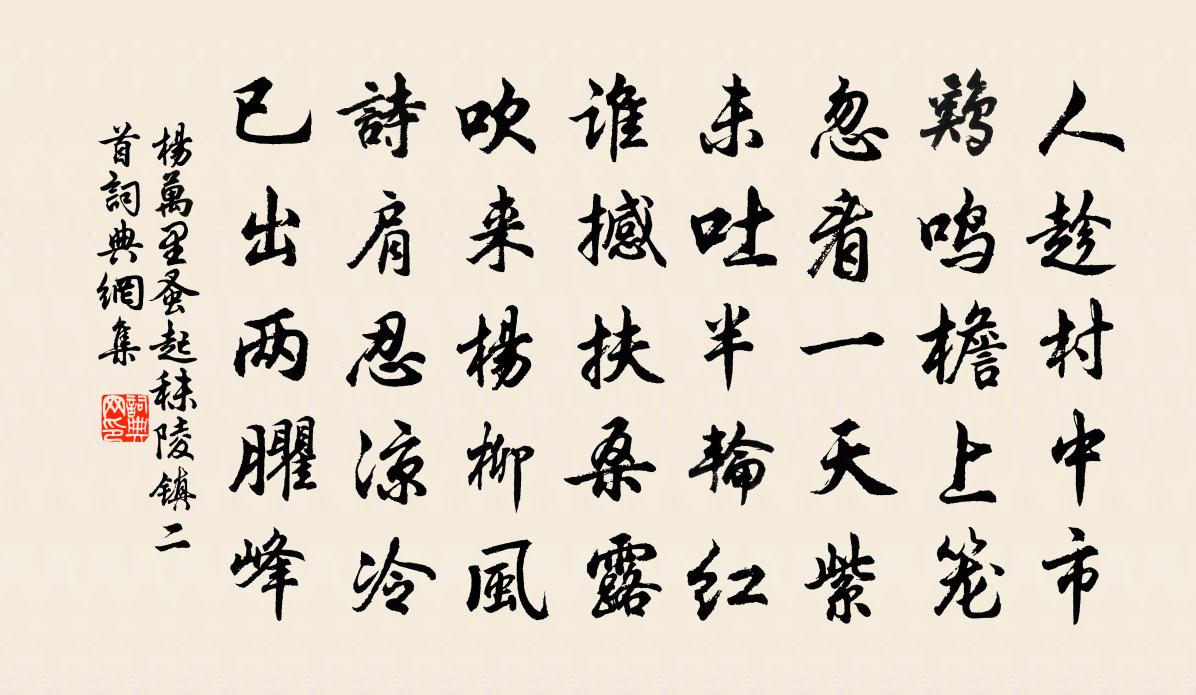 人趁村中市
鸡鸣檐上笼
忽看一天紫
未吐半輪红
谁撼扶桑露
吹来楊柳風
詩肩忍凉冷
已出两臞峰
楊萬里蚤起秣陵镇二
首詞典網集
詞典
网印